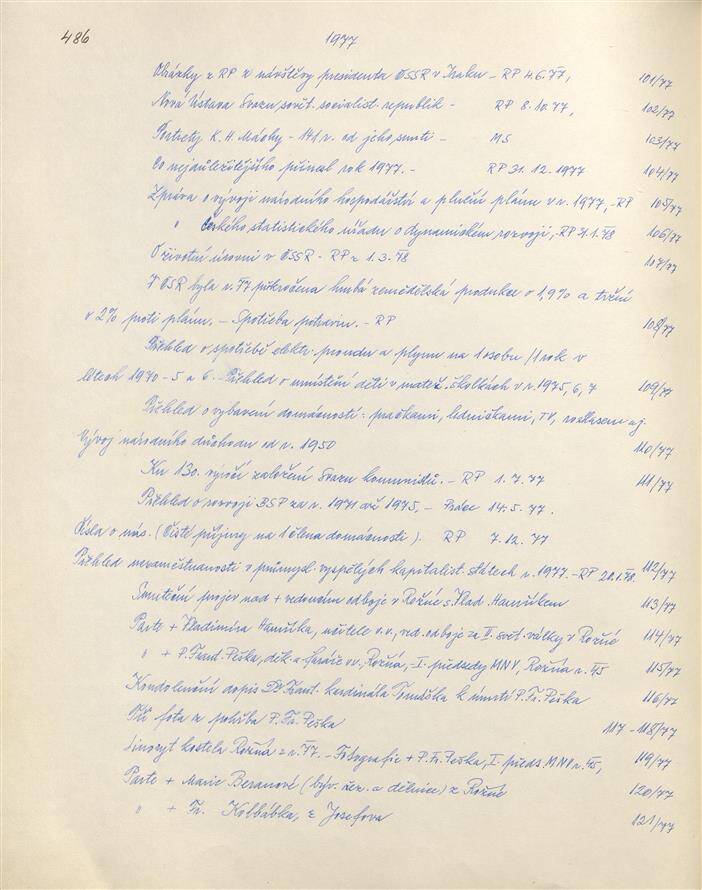 486 1977
Obrázky z RP z návštěvy presidenta ČSSR v Iraku - RP 4.6.77, 101/77
Nová Ústava Svazu sovět. socialist. republik - RP 8.10.77, 102/77
Portrety K. H. Máchy - 141 r. od jeho smrti - MS 103/77
Co nejdůležitějšího přinesl rok 1977. - RP 31.12.1977 104/77
Zpráva o vývoji národního hospodářství a plnění plánu v r. 1977, - RP 105/77
" Českého statistického úřadu o dynamickém rozvoji, - RP 31.1.78 106/77
O životní úrovni v ČSSR - RP z 1.3.78 107/77
V ČSR byla r. 77 překročena hrubá zemědělská produkce o 1,9% a tržní
o 2% proti plánu. - Spotřeba potravin. - RP 108/77
Přehled o spotřebě elektr. proudu a plynu na 1 osobu /1 rok v
létech 1970 - 5 a 6. - Přehled o umístění dětí v mateř. školkách v r. 1975, 6, 7 109/77
Přehled o vybavení domácností: pračkami, ledničkami, TV, rozhlasem aj.
Vývoj národního důchodu od r. 1950 110/77
Ku 130. výročí založení Svazu komunistů. - RP 1.7.77 111/77
Přehled o rozvoji BSP za r. 1971 až 1975, - Práce 14.5.77.
Čísla o nás. (Čisté příjmy na 1 člena domácnosti). RP 7.12.77
Přehled nezaměstnanosti v průmysl. vyspělých kapitalist. státech r. 1977. - RP 20.1.78. 112/77
Smuteční projev nad + vedoucím odboje v Rožné s. Vlad. Hamříkem 113/77
Parte + Vladimíra Hamříka, učitele v.v., ved. odboje za II. svět. války v Rožné 114/77
" + P. Frant. Peška, děk. a faráře v v. Rožná, - I. předsedy MNV, Rožná r. 45 115/77
Kondolenční dopis Dr Frant. kardinála Tomáška k úmrtí P. Fr. Peška 116/77
Tři fota z pohřbu P. Fr. Peška 117 - 118/77
Linoryt kostela Rožná z r. 77. - Fotografie + P. Fr. Peška, I. předs. MNV r. 45, 119/77
Parte + Marie Beranové (býv. řez. a dělnice) z Rožné 120/77
" + Fr. Kolbábka, z Josefova 121/77